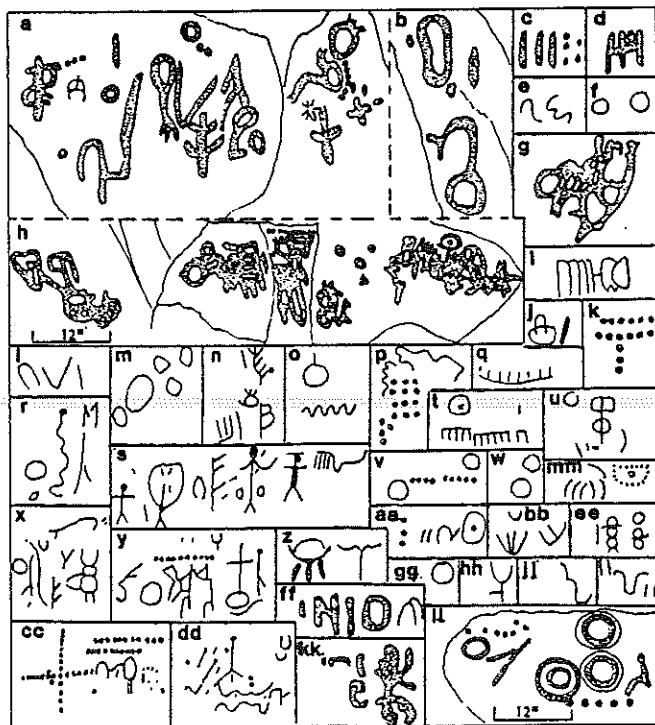 a b c d
e f
g
h
i
12"
j k
l m n o p q
r t u
s v w mm
x y z aa bb ee
gg hh jj
ff
cc dd kk ll
12"